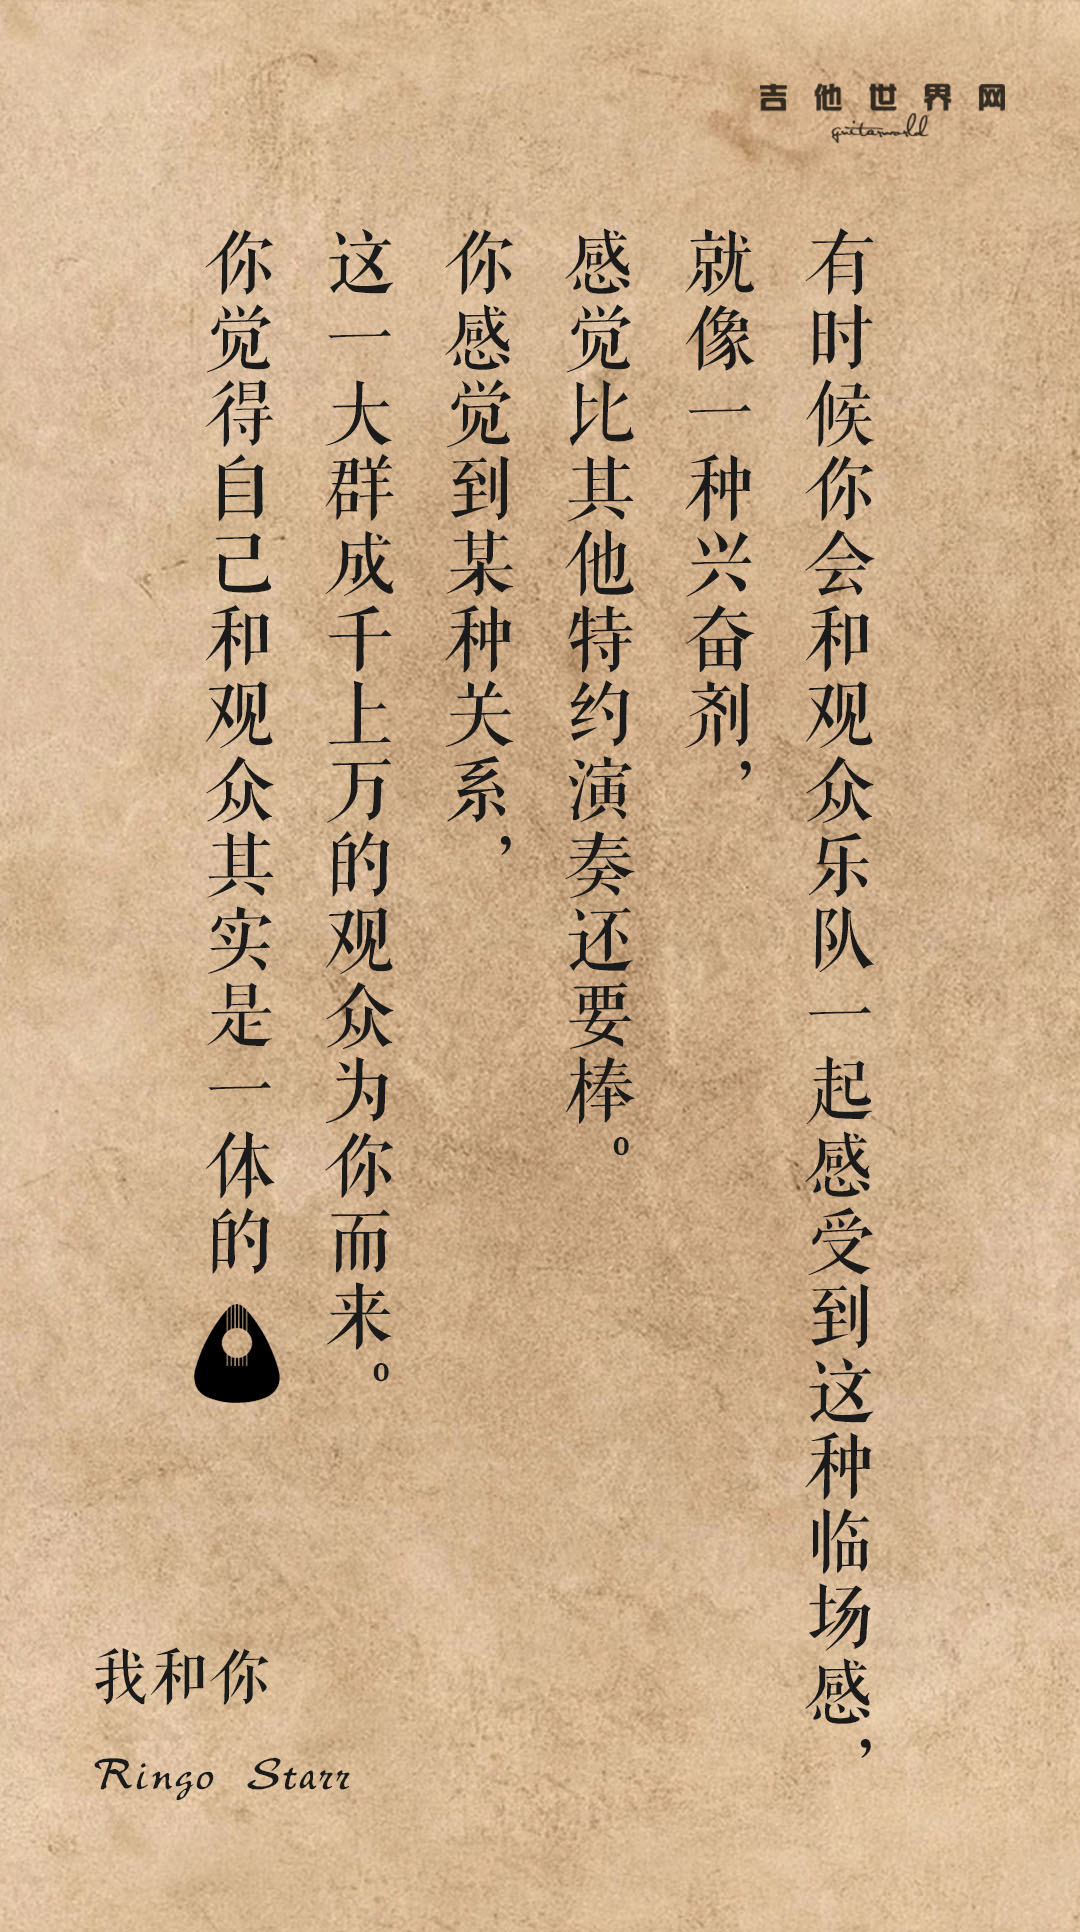 吉他世界网
guitarworld
有时候你会和观众乐队一起感受到这种临场感，
就像一种兴奋剂，
感觉比其他特约演奏还要棒。
你感觉到某种关系，
这一大群成千上万的观众为你而来。
你觉得自己和观众其实是一体的
我和你
Ringo Starr